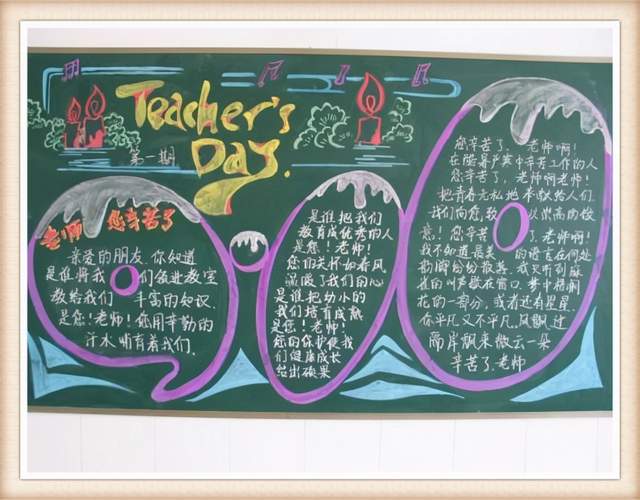 Teacher's
Day.
第一期
老师 您辛苦了
亲爱的朋友.你知道
是谁将我们领进教室
教给我们丰富的知识
是您!老师!您用辛勤的
汗水哺育着我们.
是谁把我们
教育成优秀的人
是您!老师!
您的关怀如春风
温暖了我们的心
是谁把幼小的
我们培育成熟
是您!老师!
您的保护使我
们健康成长
结出硕果
您辛苦了,老师啊!
在酷暑严寒中辛苦工作的人
您辛苦了,老师啊老师!
把青春无私地奉献给人们.
我们向您致以崇高的敬
意!您辛苦了.老师啊!
我不知道最美的语言在何处
的叫声歇在窗口.梦中梧桐
花的一部分,或者还有星星.
你平凡又不平凡.风飘过
隔岸飘来像云一朵
辛苦了.老师